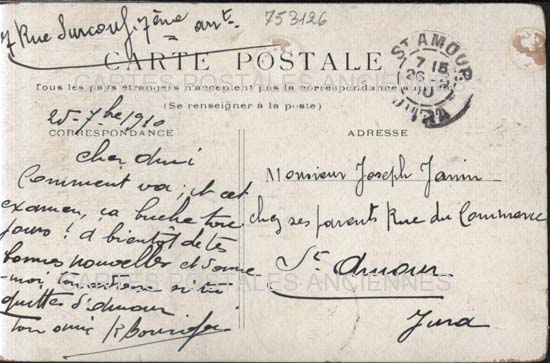 7 Rue Surcouf, 7ème arrt.
753126
CARTE POSTALE
Tous les pays étrangers n'acceptent pas la correspondance au
(Se renseigner à la poste)
CARTES POSTALES ANCIENNES
ST AMOUR
7 15
26
10
JURA
25-7bre 1910
CORRESPONDANCE
Cher Ami
Comment va; et cet
examen, ça buche tou
jours! A bientôt de tes
bonnes nouvelles et donne
-moi si tu
quittes St Amour
ton ami
ADRESSE
Monsieur Joseph Janin
chez ses parents Rue du Commerce
St Amour
Jura
CARTES POSTALES ANCIENNES